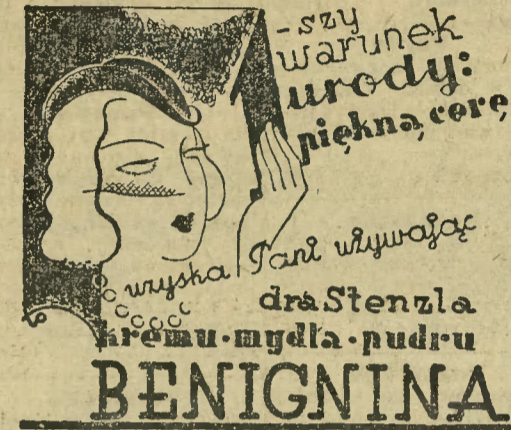 -szy
warunek
urody:
piękną cerę
uzyska Pani używając
dra Stenzla
kremu·mydła·pudru
BENIGNINA